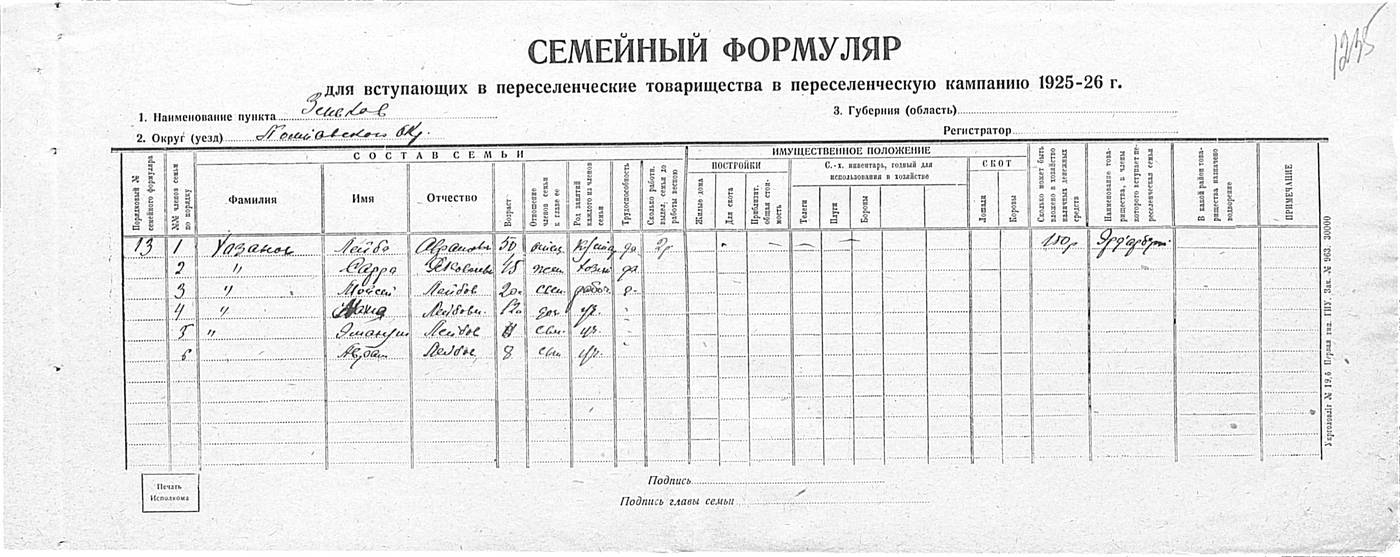 1235
СЕМЕЙНЫЙ ФОРМУЛЯР
для вступающих в переселенческие товарищества в переселенческую кампанию 1925-26 г.
1. Наименование пункта Зеньков
3. Губерния (область)
2. Округ (уезд) Полтавского Окр.
Регистратор
СОСТАВ СЕМЬИ
ИМУЩЕСТВЕННОЕ ПОЛОЖЕНИЕ
Порядковый № семейного формуляра
№№ членов семьи по порядку
Фамилия
Имя
Отчество
Возраст
Отношение членов семьи к главе ее
Род занятий каждого из членов семьи
Трудоспособность
Сколько работн. выдел. семья до работы весною
ПОСТРОЙКИ
Жилые дома
Для скота
Приблизит. общая стоимость
С.-х. инвентарь, годный для использования в хозяйстве
Телеги
Плуги
Бороны
СКОТ
Лошади
Коровы
Сколько может быть вложено в хозяйство наличных денежных средств
Наименование товарищества, в члены которого вступает переселенческая семья
В какой район товарищества назначено водворение
ПРИМЕЧАНИЕ
13 1 Хазанов Лейба 50 да 2р. — — 150р
2 " Сарра 45 жен да
3 " Моисей Лейбов 20 сын рабоч.
4 " Лейбовн. 12 доч уч.
5 " Лейбов сын уч.
6 Абрам Лейбов 8 сын уч.
Печать Исполкома
Подпись
Подпись главы семьи
Укрголовліт № 19,5 Первая тип. ГПУ. Зак. № 963 30000